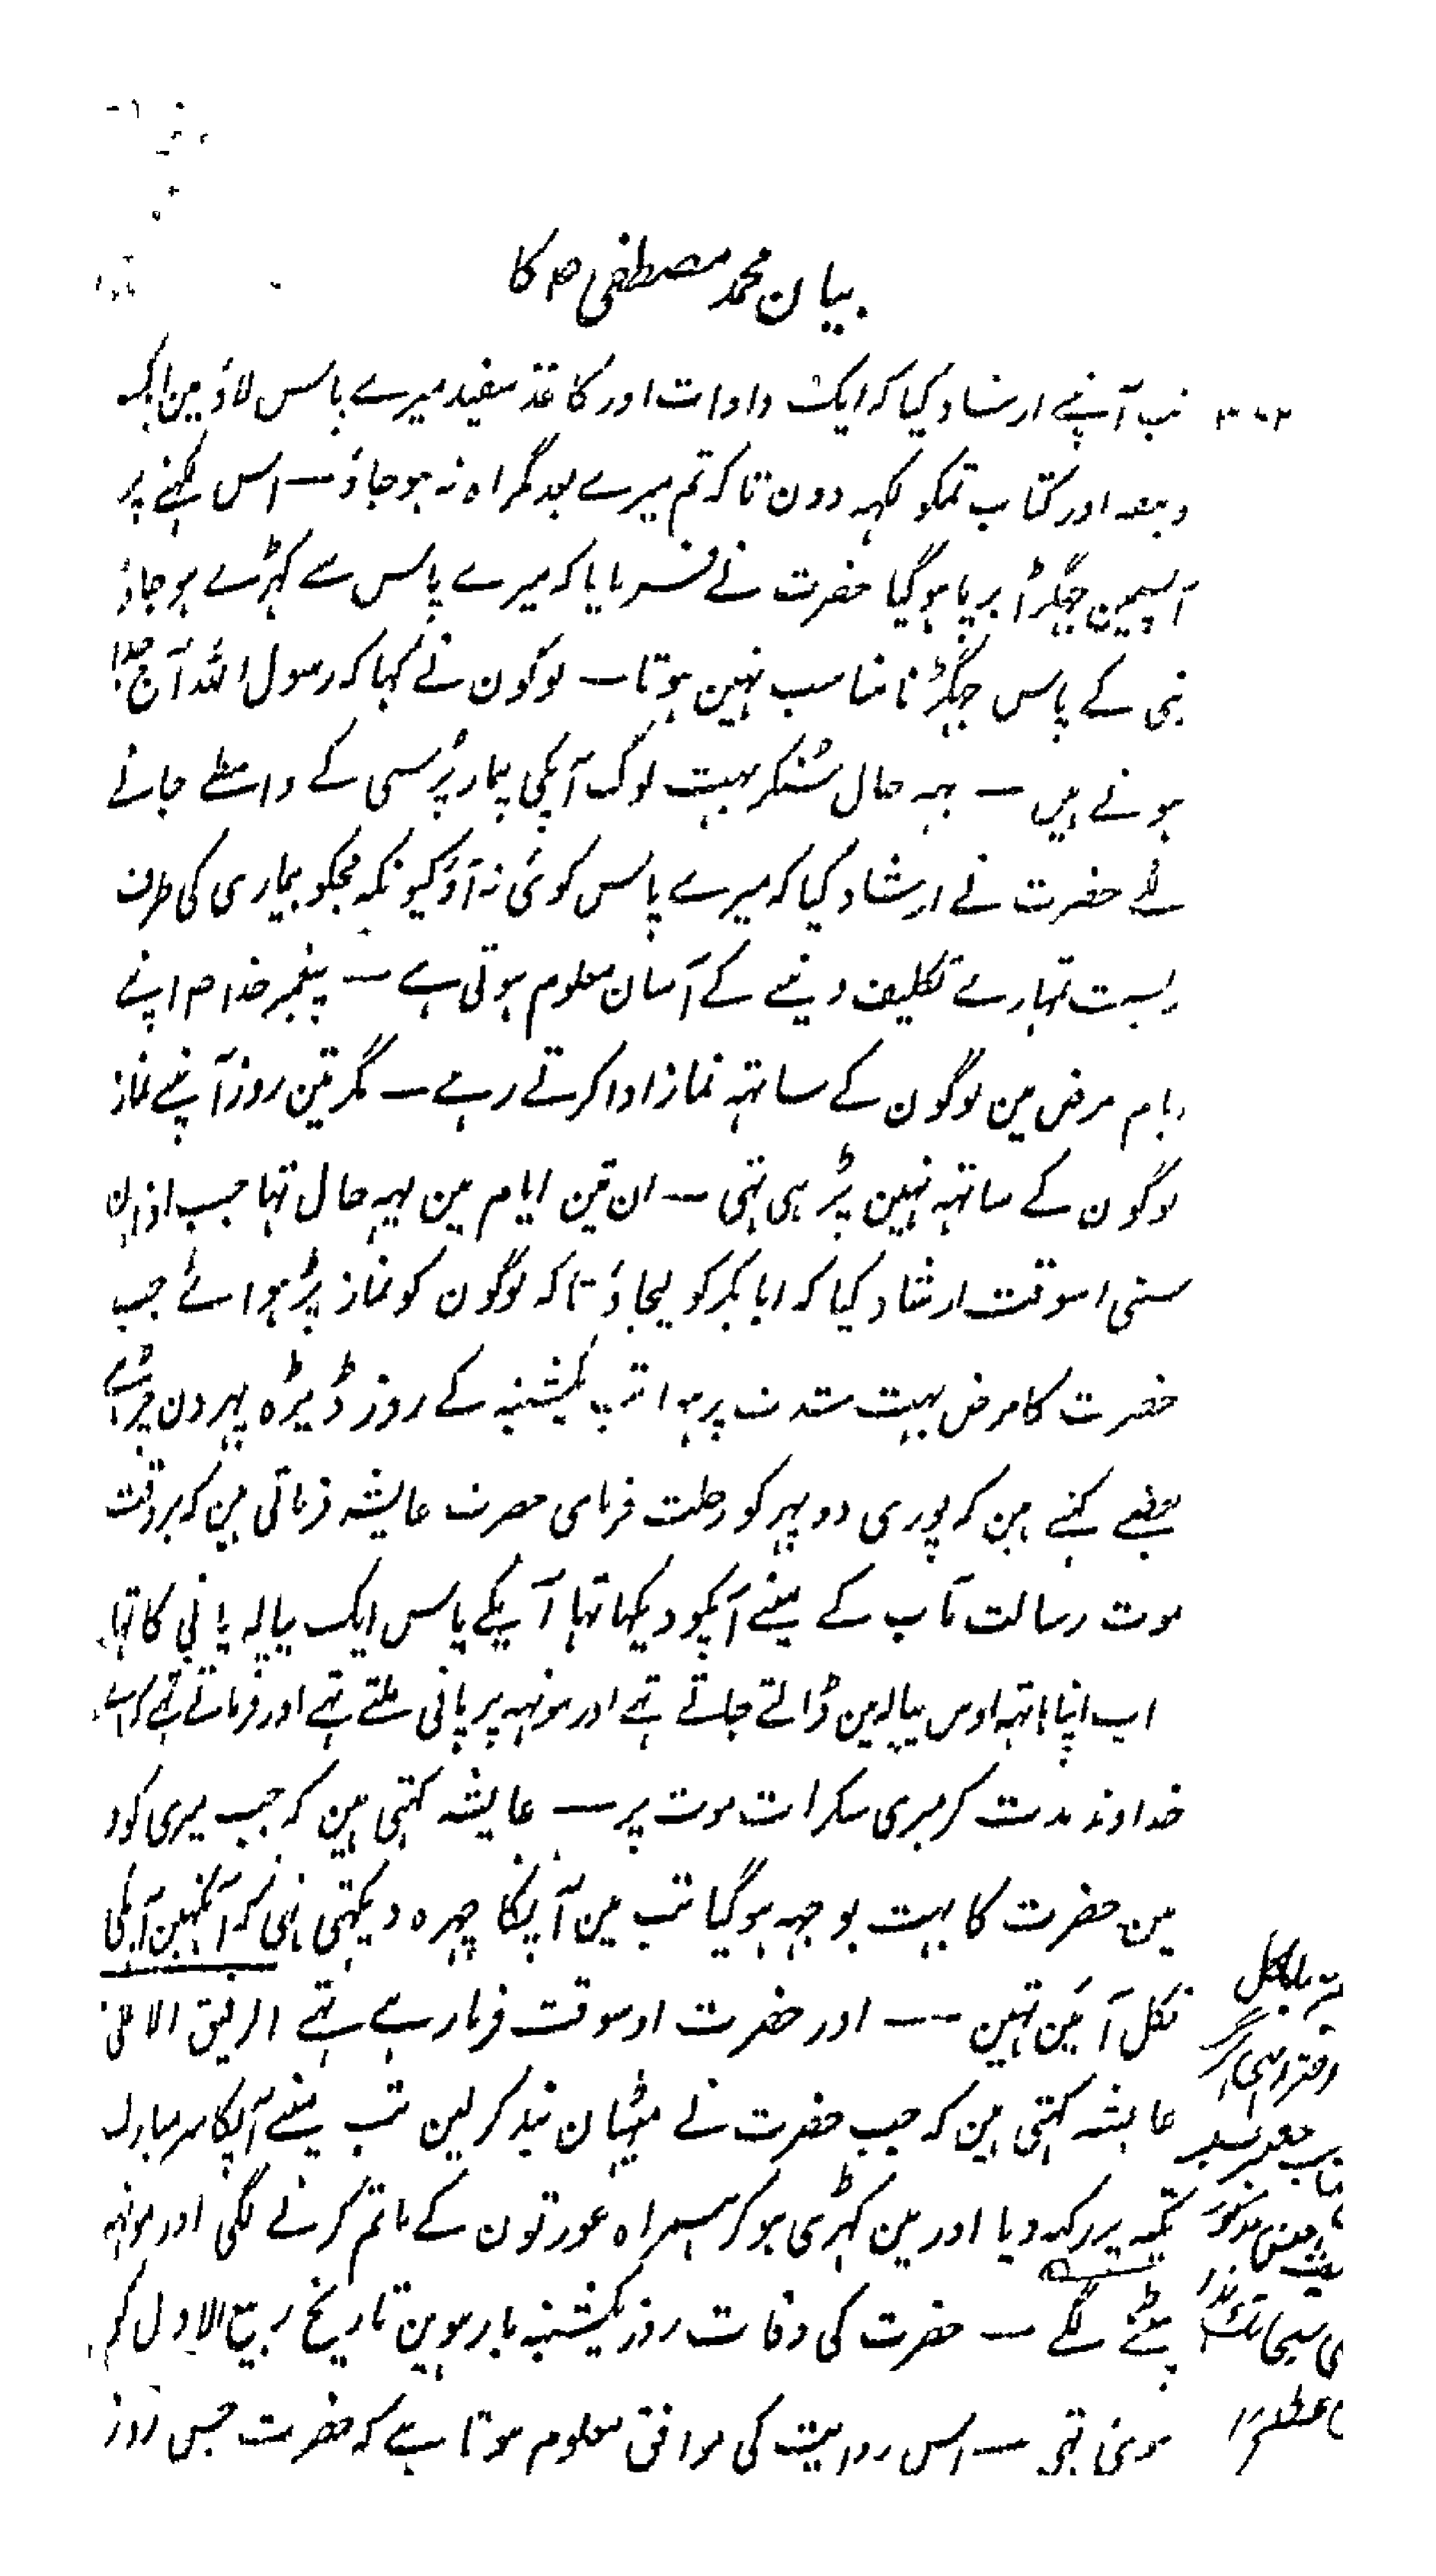 بیان محمد مصطفی ص کا
تب آپنے ارشاد کیا کہ ایک داوات اور کاغذ سفید میرے پاس لاؤ مین ایک
وبعہ اور کتاب تمکو لکہہ دون تاکہ تم میرے بعد گمراہ نہ ہو جاؤ — اس کہنے پر
آپسمین جہگڑا برپا ہوگیا حضرت نے فرمایا کہ میرے پاس سے کہڑے ہو جاؤ
نبی کے پاس جہگڑنا مناسب نہین ہوتا — لوگون نے کہا کہ رسول اللہ آج جدا
ہوتے ہیں — یہہ حال سُنکر بہت لوگ آپکی بیمار پُرسی کے واسطے جانے
لگے حضرت نے ارشاد کیا کہ میرے پاس کوئی نہ آؤ کیونکہ مجکو بیماری کی طرف
بسبت تمہارے تکلیف دینے کے آسان معلوم ہوتی ہے — پیغمبر خدا ص اپنے
ایام مرض مین لوگون کے ساتہہ نماز ادا کرتے رہے — مگر تین روز آپنے نماز
لوگون کے ساتہہ نہین پڑہی تہی — ان تین ایام مین یہہ حال تہا جب اذان
سنی اسوقت ارشاد کیا کہ ابابکر کو لیجاؤ تاکہ لوگون کو نماز پڑہوائے جب
حضرت کا مرض بہت شدت پر ہوا تب یکشنبہ کے روز ڈیڑہ پہر دن چڑہے
بعضے کہتے ہین کہ پوری دوپہر کو رحلت فرمائی حضرت عایشہ فرماتی ہین کہ بروقت
موت رسالت مآب کے مینے آپکو دیکہا تہا آپکے پاس ایک پیالہ پانی کا تہا
اب اپنا ہاتہہ اوس پیالہ مین ڈالتے جاتے تہے اور مونہہ پر پانی ملتے تہے اور فرماتے تہے اے
خداوند مدت کر میری سکرات موت پر — عایشہ کہتی ہین کہ جب میری گود
مین حضرت کا بہت بوجہہ ہوگیا تب مین آپکا چہرہ دیکہتی تہی کہ آنکہین آپکی
نکل آئین تہین — اور حضرت اوسوقت فرما رہے تہے الرفیق الاعلی
عایشہ کہتی ہین کہ جب حضرت نے مٹہیان بند کر لین تب مینے آپکا سر مبارک
تکیہ پر رکہہ دیا اور مین کہڑی ہو کر ہمراہ عورتون کے ماتم کرنے لگی اور مونہہ
پیٹنے لگے — حضرت کی وفات روز یکشنبہ بارہوین تاریخ ربیع الاول کو
ہوئی تہی — اس روایت کی موافق معلوم ہوتا ہے کہ حضرت جس روز